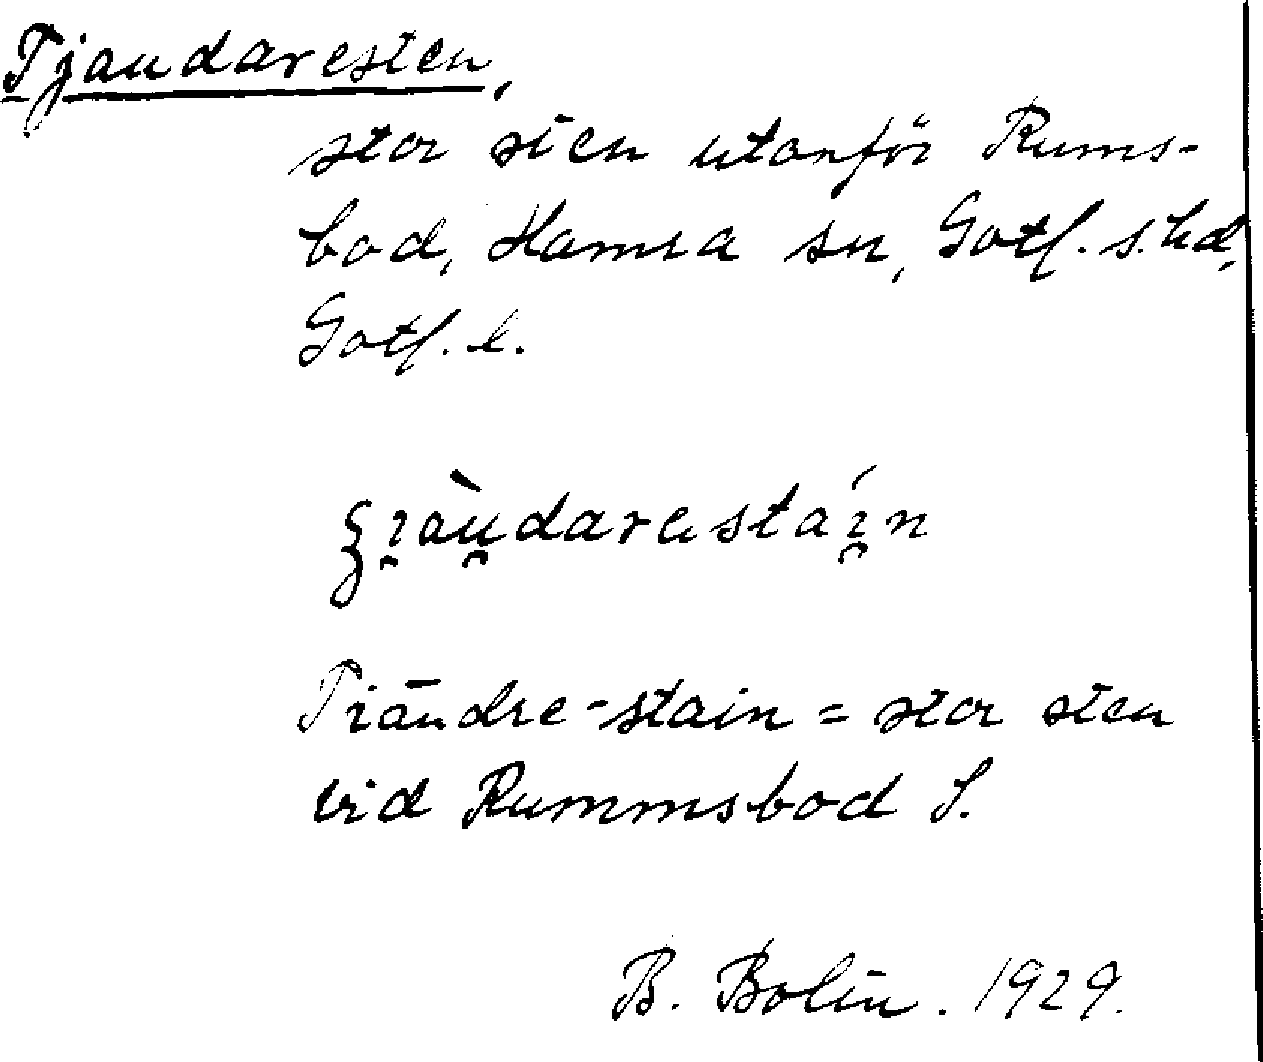 Tjaudaresten,
stor sten utanför Rums-
bod, Hamra sn, Gotl. s. hd,
Gotl. l.
Tiāudre-stain = stor sten
vid Rummsbod S.
B. Bolin. 1929.